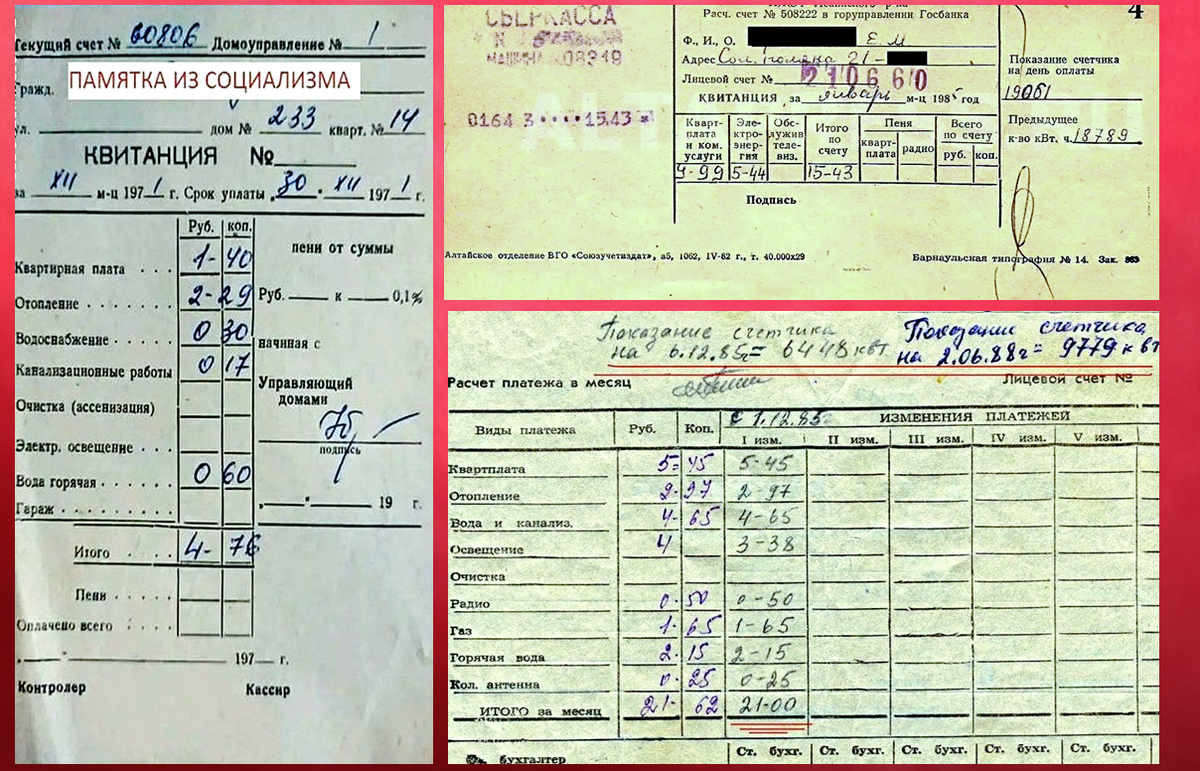 Текущий счет № 60806 Домоуправление № 1
ПАМЯТКА ИЗ СОЦИАЛИЗМА
Гражд.
ул. дом № 233 кварт. № 14
КВИТАНЦИЯ №
за XII м-ц 1971 г. Срок уплаты „30" XII 1971 г.
Руб. коп.
пени от суммы
Квартирная плата . . . 1- 40
Отопление . . . . . . . 2- 29
Руб. к 0,1%
Водоснабжение . . . 0 30
начиная с
Канализационные работы 0 17
Очистка (ассенизация)
Управляющий
домами
Электр. освещение
подпись
Вода горячая . . . . . . 0 60
Гараж . . . . . . . . .
„ " 19 г.
Итого . . . . 4- 76
Пени . . . . .
Оплачено всего . . . .
„ " 197 г.
Контролер Кассир
СБЕРКАССА
МАШИНА 08319
0164 3 ···· 15.43
4
Расч. счет № 508222 в горуправлении Госбанка
Ф., И., О. Е. М
Адрес 21-
Лицевой счет № 210660
КВИТАНЦИЯ за январь м-ц 1985 год
Показание счетчика
на день оплаты
19061
Предыдущее
к-во кВт. ч. 18789
Кварт-плата и ком. услуги
Эле-ктро-энер-гия
Обс-лужив теле-виз.
Итого по счету
Пеня
кварт-плата
радио
Всего по счету
руб. коп.
9-99 5-44 15-43
Подпись
Алтайское отделение ВГО «Союзучетиздат», а5, 1062, IV-82 г., т. 40.000х29
Барнаульская типография № 14. Зак. 863
Показание счетчика
на 6.12.85г= 6448 квт
Показании счетчика
на 2.06.88г= 9779 квт
Расчет платежа в месяц
Лицевой счет №
Виды платежа Руб. Коп.
с 1.12.85г ИЗМЕНЕНИЯ ПЛАТЕЖЕЙ
I изм. II изм. III изм. IV изм. V изм.
Квартплата 5= 45 5-45
Отопление 2- 97 2-97
Вода и канализ. 4- 65 4-65
Освещение 4 3-38
Очистка
Радио 0- 50 0-50
Газ 1- 65 1-65
Горячая вода 2- 15 2-15
Кол. антенна 0- 25 0-25
ИТОГО за месяц 21- 62 21-00
Ст. бухг. Ст. бухг. Ст. бухг. Ст. бухг. Ст. бухг.
бухгалтер